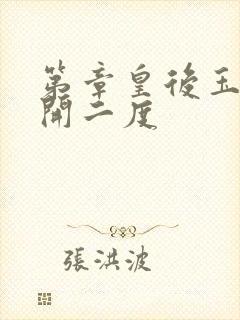 第章皇後玉
開二度
張洪波